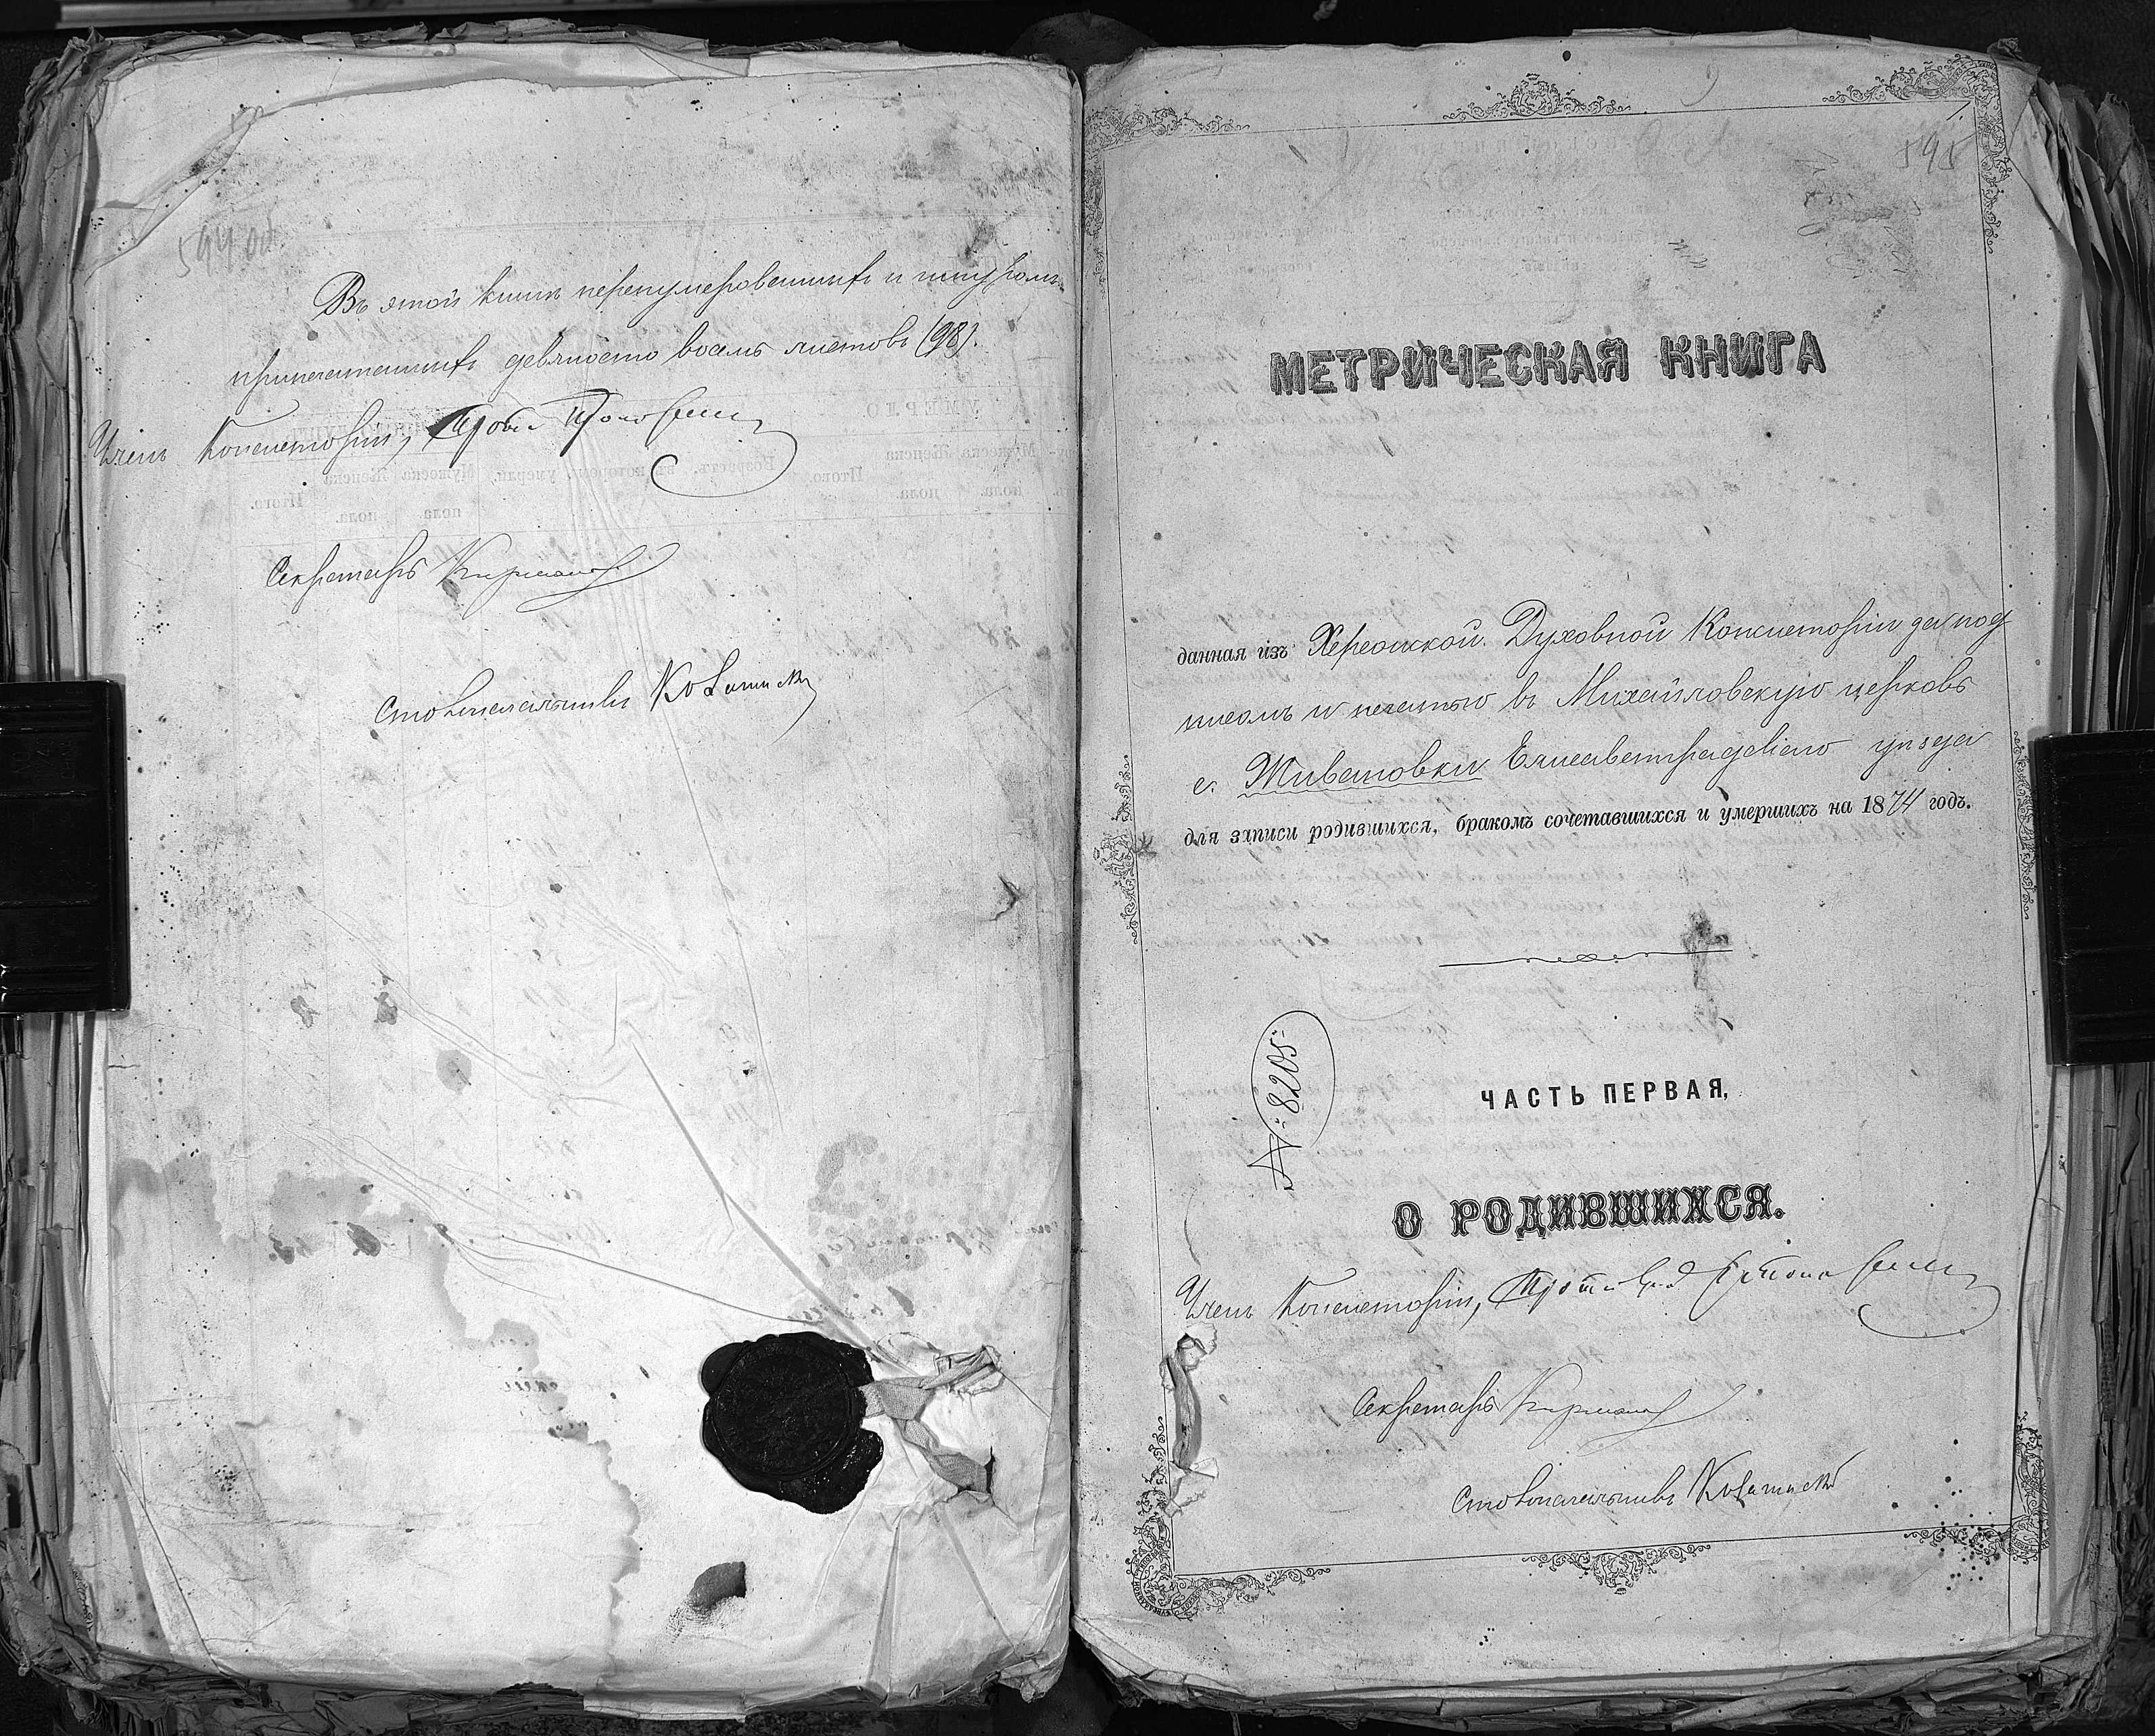 594 об
Въ этой книгѣ перенумерованныхъ и шнуромъ
припечатанныхъ девяносто восемь листовъ (98).
Членъ Консисторіи,
Секретарь
Столоначальникъ
595
МЕТРИЧЕСКАЯ КНИГА
данная изъ Херсонской Духовной Консисторіи за под
писомъ и печатью въ Михайловскую церковь
с. Живановки Елисаветградскаго уѣзда
для записи родившихся, бракомъ сочетавшихся и умершихъ на 1874 годъ.
№ 8205
ЧАСТЬ ПЕРВАЯ,
О РОДИВШИХСЯ.
Членъ Консисторіи,
Секретарь
Столоначальникъ